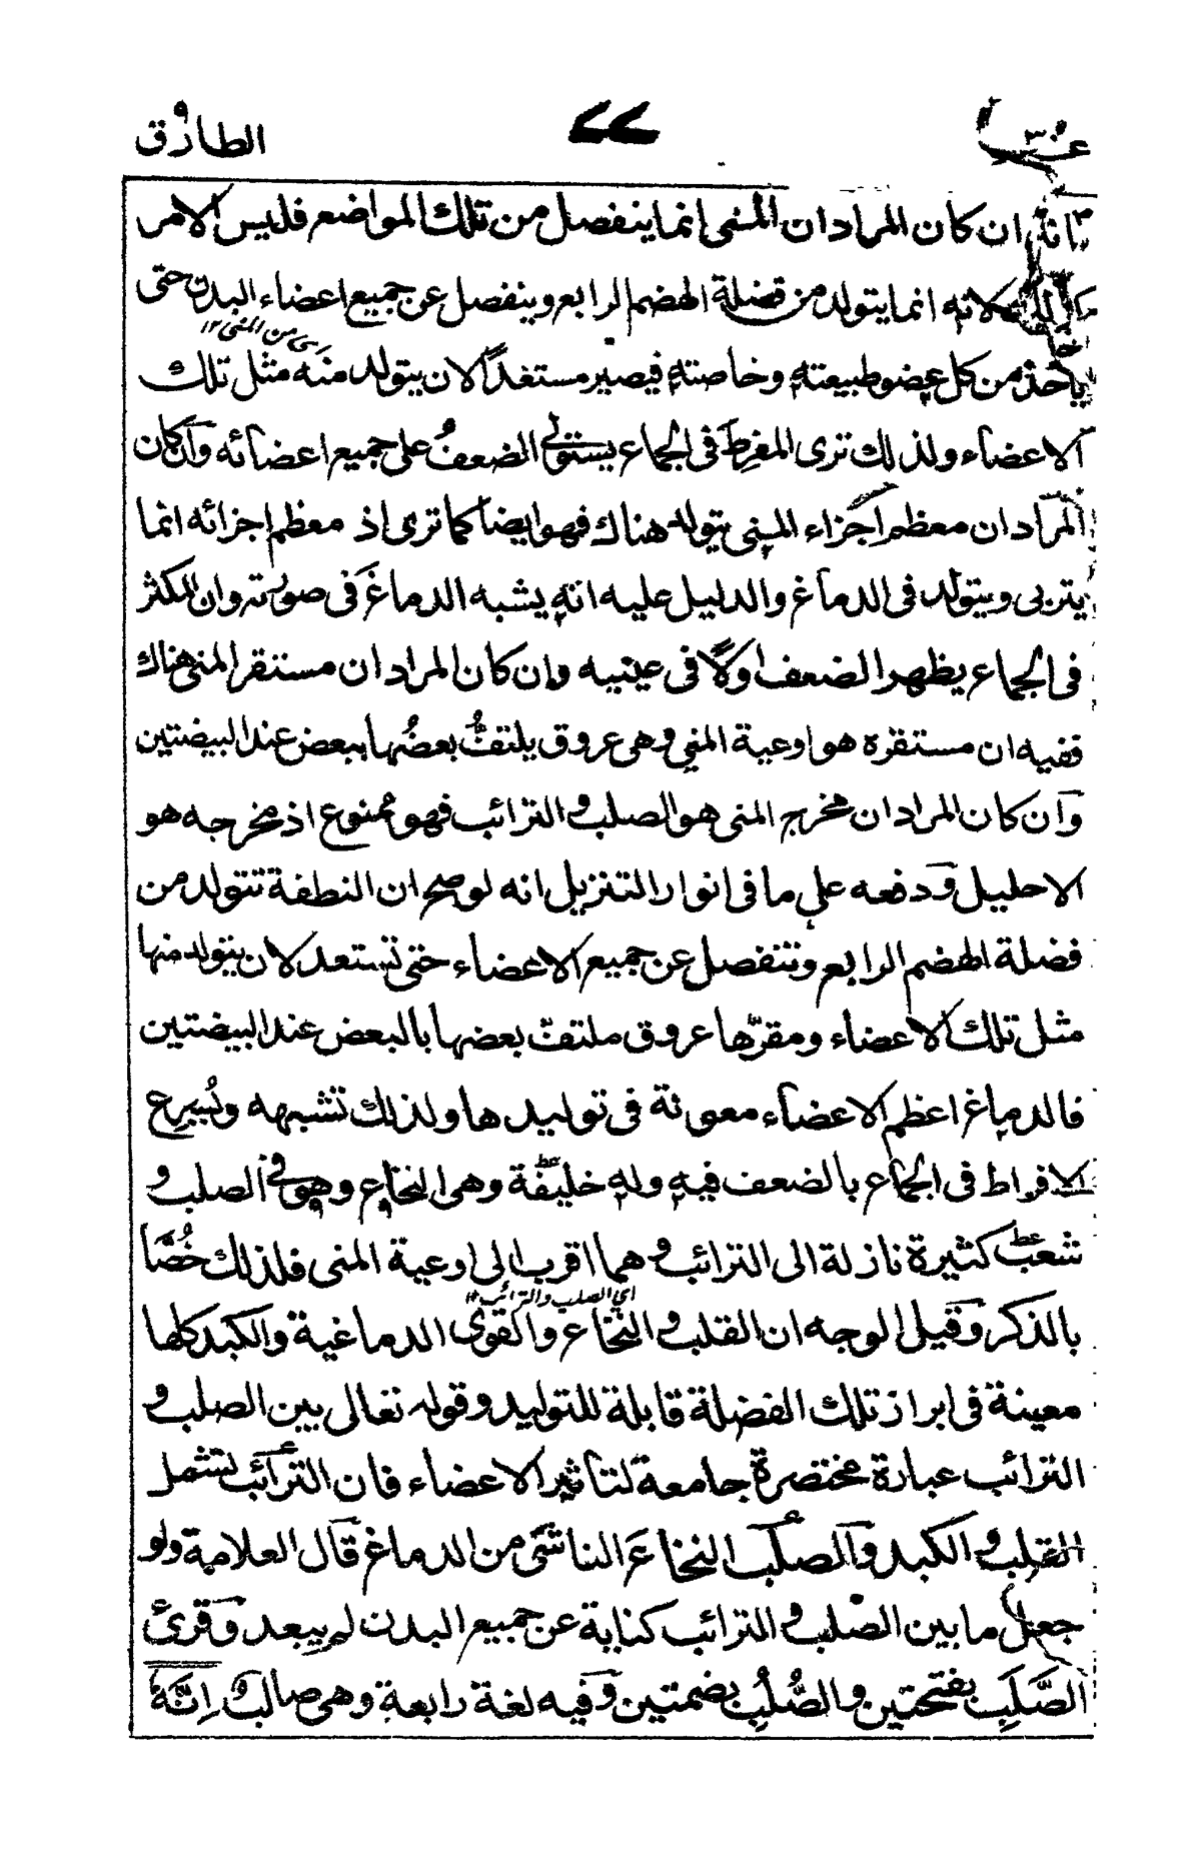 عم ٣٠ ٧٧ الطارق
بانه ان كان المراد ان المنى انما ينفصل من تلك المواضع فليس الامر
كذلك لانه انما يتولد من فضلة الهضم الرابع وينفصل عن جميع اعضاء البدن حتى
اى من المنى ١٢
ياخذ من كل عضو طبيعته وخاصته فيصير مستعدًّا لان يتولد منه مثل تلك
الاعضاء ولذلك ترى المفرِط فى الجماع يستولى الضعفُ على جميع اعضائه وان كان
المراد ان معظم اجزاء المنى يتولد هناك فهو ايضا كما ترى اذ معظم اجزائه انما
يتربى ويتولد فى الدماغ والدليل عليه انه يشبه الدماغَ فى صورته وان المكثر
فى الجماع يظهر الضعف اولًا فى عينيه وان كان المراد ان مستقر المنى هناك
ففيه ان مستقره هو اوعية المنى وهى عروق يلتفُّ بعضُها ببعض عند البيضتين
وان كان المراد ان مخرج المنى هو الصلب و الترائب فهو ممنوع اذ مخرجه هو
الاحليل ودفعه على ما فى انوار التنزيل انه لو صح ان النطفة تتولد من
فضلة الهضم الرابع وتنفصل عن جميع الاعضاء حتى تستعد لان يتولد منها
مثل تلك الاعضاء ومقرّها عروق ملتفّ بعضها بالبعض عند البيضتين
فالدماغ اعظم الاعضاء معونة فى توليدها ولذلك تشبهه ويُسرع
الافراط فى الجماع بالضعف فيه وله خليفة وهى النخاع وهو فى الصلب و
شعب كثيرة نازلة الى الترائب و هما اقرب الى اوعية المنى فلذلك خُصَّا
اى الصلب والترائب ١٢
بالذكر وقيل الوجه ان القلب و النخاع و القوى الدماغية والكبد كلها
معينة فى ابراز تلك الفضلة قابلة للتوليد وقوله تعالى بين الصلب و
الترائب عبارة مختصرة جامعة لتاثير الاعضاء فان الترائب تشمل
القلب و الكبد والصلب النخاعَ الناشى من الدماغ قال العلامة ولو
جعل ما بين الصلب و الترائب كناية عن جميع البدن لم يبعد وقرئ
الصَّلَبِ بفتحتين والصُّلُبِ بضمتين وفيه لغة رابعة وهى صالب و اِنَّهٗ